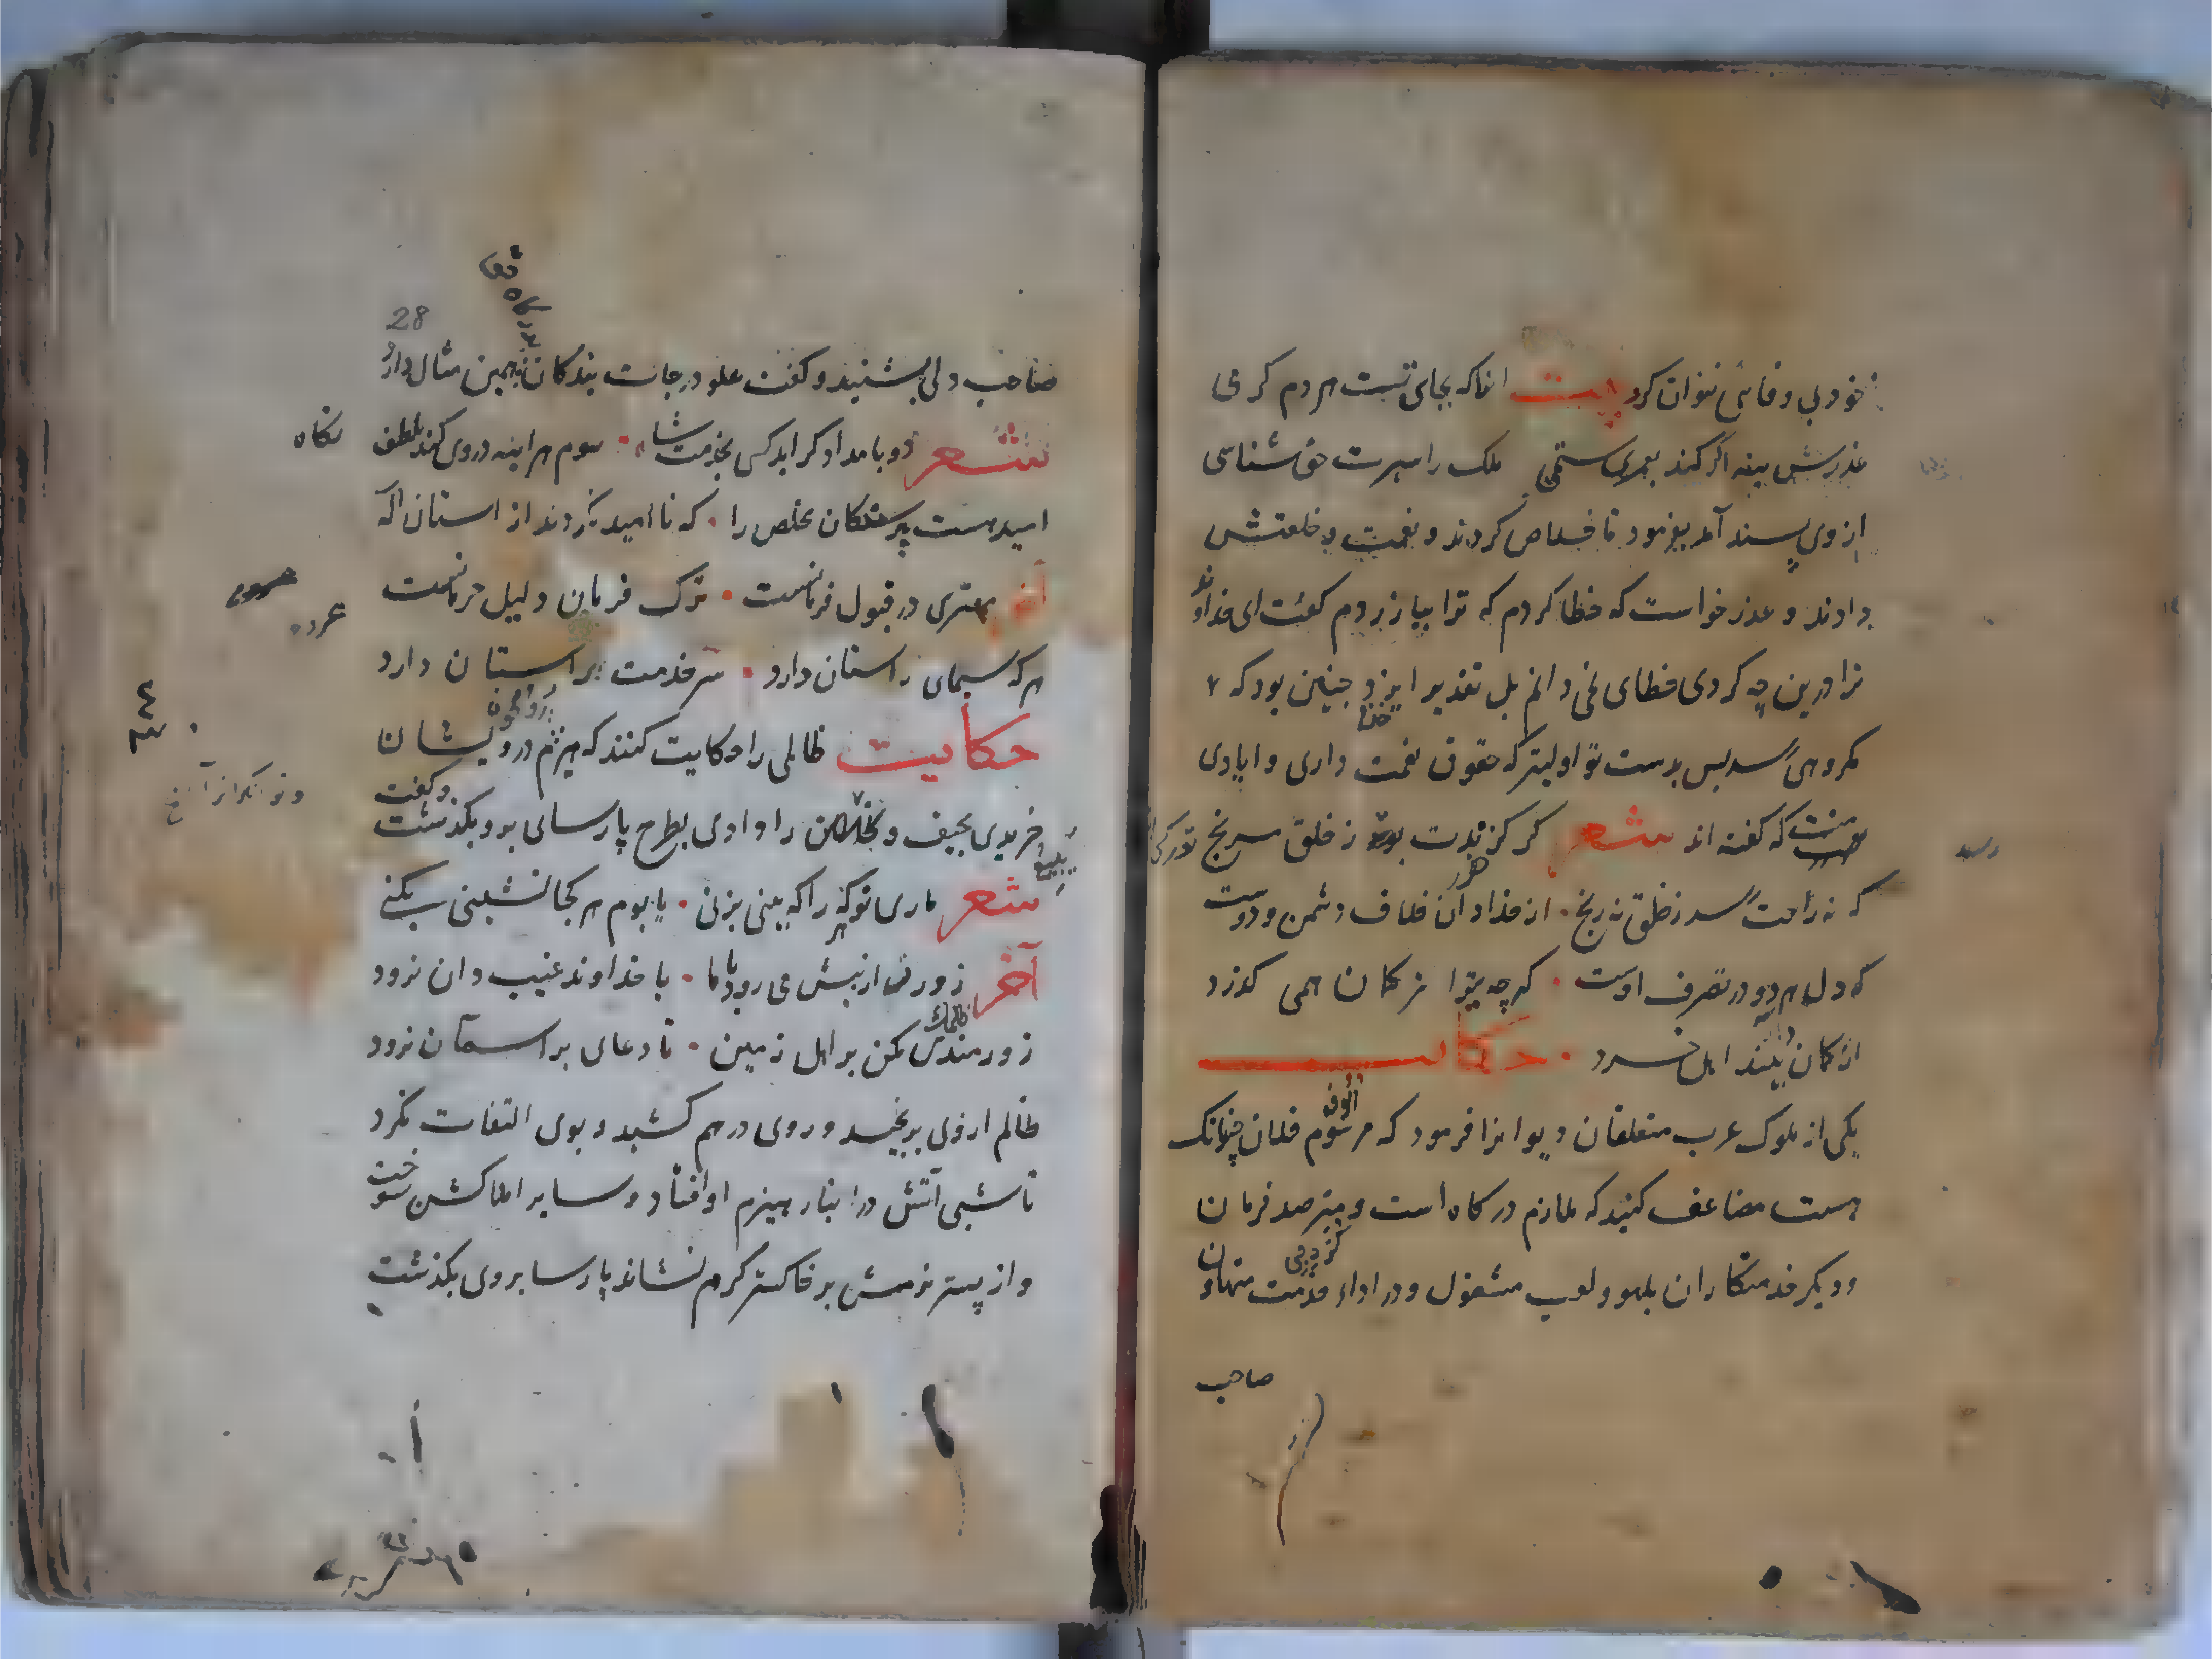 خود بی وفائی نتوان کرد بیت انکه بجای تست هر دم کرمی
عذرش بنه ار کند بعمری ستمی ملک را سیرت حق شناسی
از وی پسند آمد بفرمود تا خلاص کردند و نعمت و خلعتش
دادند و عذر خواست که خطا کردم که ترا بیازردم کفت ای خداوند
ترا درین چه کردی خطای نمی دانم بل تقدیر ایزد چنین بود که
مکروهی رسد پس بدست تو اولیتر که حقوق نعمت داری و ایادی
منت که کفته اند شعر کر کزندت رسد ز خلق مرنج
که نه راحت رسد ز خلق نه رنج از خدا دان خلاف دشمن و دوست
که دل هر دو در تصرف اوست کرچه تیر از کمان همی کذرد
از کمان دار بیند اهل خرد حکایت
یکی از ملوک عرب متعلقان دیوانرا فرمود که مرسوم فلان چندانک
هست مضاعف کنید که ملازم درکاه است و مترصد فرمان
و دیکر خدمتکاران بلهو و لعب مشغول و در اداء خدمت متهاون
صاحب
28
صاحب دلی بشنید و کفت علو درجات بندکان همین مثال دارد
شعر دو بامداد کر اید کسی بخدمت شاه سوم هراینه در وی کند بلطف
نکاه
امید هست پرستندکان مخلص را که ناامید نکردند از استان اله
آخر مهتری در قبول فرمانست ترک فرمان دلیل حرمانست
هر که سیمای راستان دارد سر خدمت بر استان دارد
حکایت ظالمی را حکایت کنند که هیزم درویشان
خریدی بحیف و توانکران را دادی بطرح پارسای برو بکذشت و کفت
شعر ماری تو که هر که را ببینی بزنی یا بوم که هر کجا نشینی بکنی
آخر زورت ار پیش می رود با ما با خداوند غیب دان نرود
زورمندی مکن بر اهل زمین تا دعای بر اسمان نرود
ظالم ازوی برنجید و روی درهم کشید و بوی التفات نکرد
تا شبی آتش در انبار هیزم او افتاد و سایر املاکش سوخت
و از بستر نرمش بر خاکستر کرم نشاند پارسا بروی بکذشت